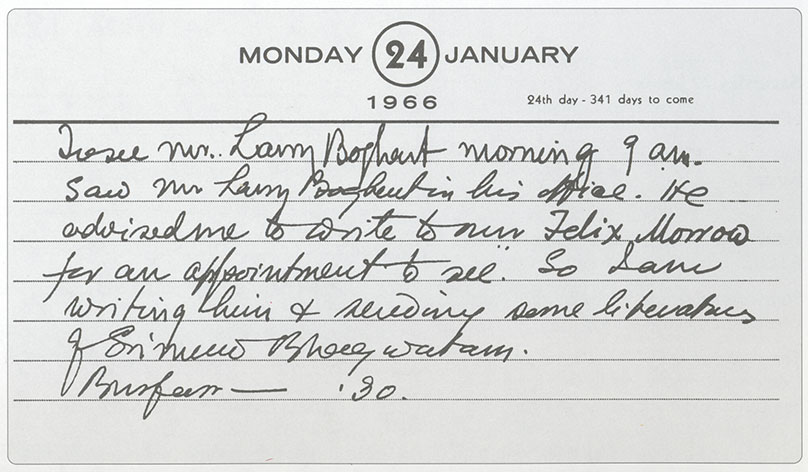 MONDAY 24 JANUARY
1966
24th day - 341 days to come
To see mr. Larry Boghart morning 9 am.
Saw mr Larry Boghart in his office. He
advised me to write to mr Felix Morrow
for an appointment to see. So I am
writing him & sending some literatures
of Srimad Bhagwatam.
Busfare — .30.